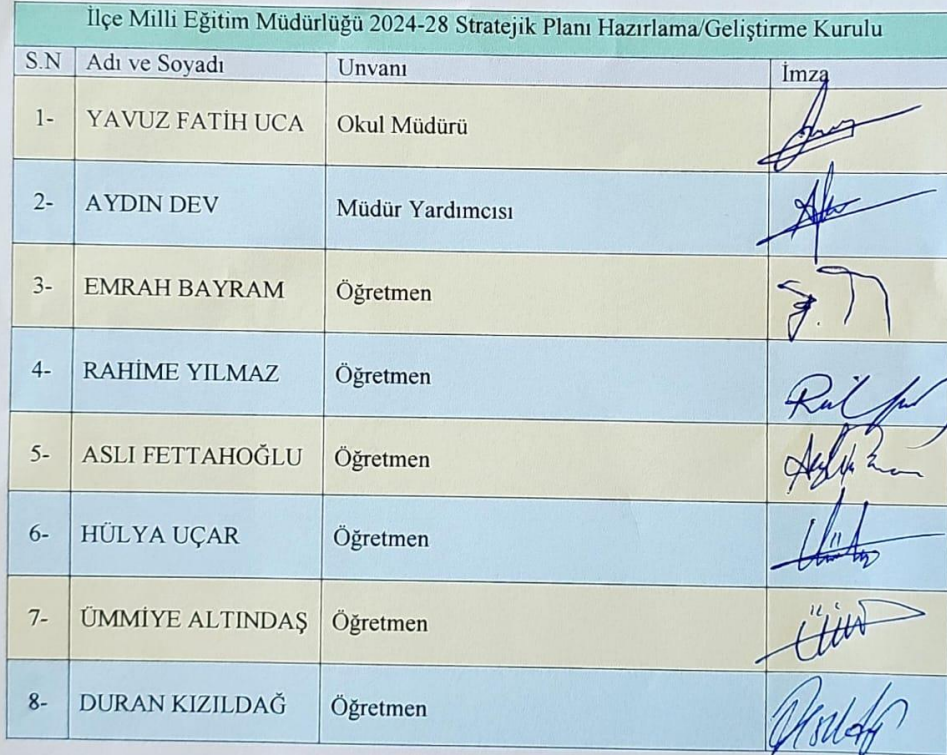 İlçe Milli Eğitim Müdürlüğü 2024-28 Stratejik Planı Hazırlama/Geliştirme Kurulu
S.N Adı ve Soyadı Unvanı İmza
1- YAVUZ FATİH UCA Okul Müdürü
2- AYDIN DEV Müdür Yardımcısı
3- EMRAH BAYRAM Öğretmen
4- RAHİME YILMAZ Öğretmen
5- ASLI FETTAHOĞLU Öğretmen
6- HÜLYA UÇAR Öğretmen
7- ÜMMİYE ALTINDAŞ Öğretmen
8- DURAN KIZILDAĞ Öğretmen